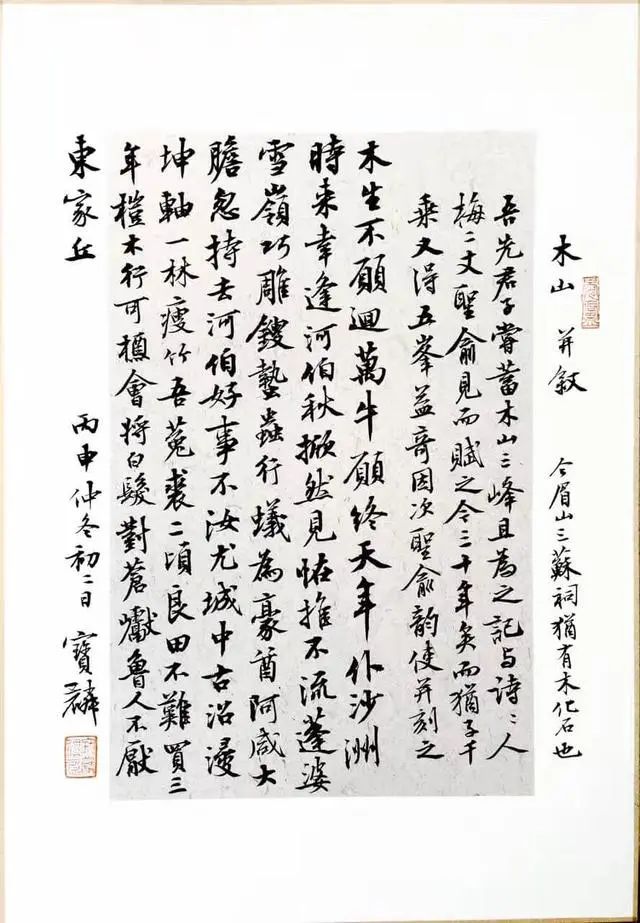 木山 并敘 今眉山三蘇祠猶有木化石也
吾先君子嘗蓄木山三峰且為之記与詩〻人
梅二丈聖俞見而賦之今三十年矣而猶子千
乘又得五峯益奇因次聖俞韵使并刻之
木生不願迴萬牛願終天年仆沙洲
時來幸逢河伯秋掀然見怪推不流蓬婆
雪嶺巧雕鎪蟄蟲行蟻為豪酋阿咸大
膽忽持去河伯好事不汝尤城中古沼浸
坤軸一林瘦竹吾菟裘二頃良田不難買三
年榿木行可槱會將白髮對蒼巘魯人不厭
東家丘 丙申仲冬初二日 寶麟